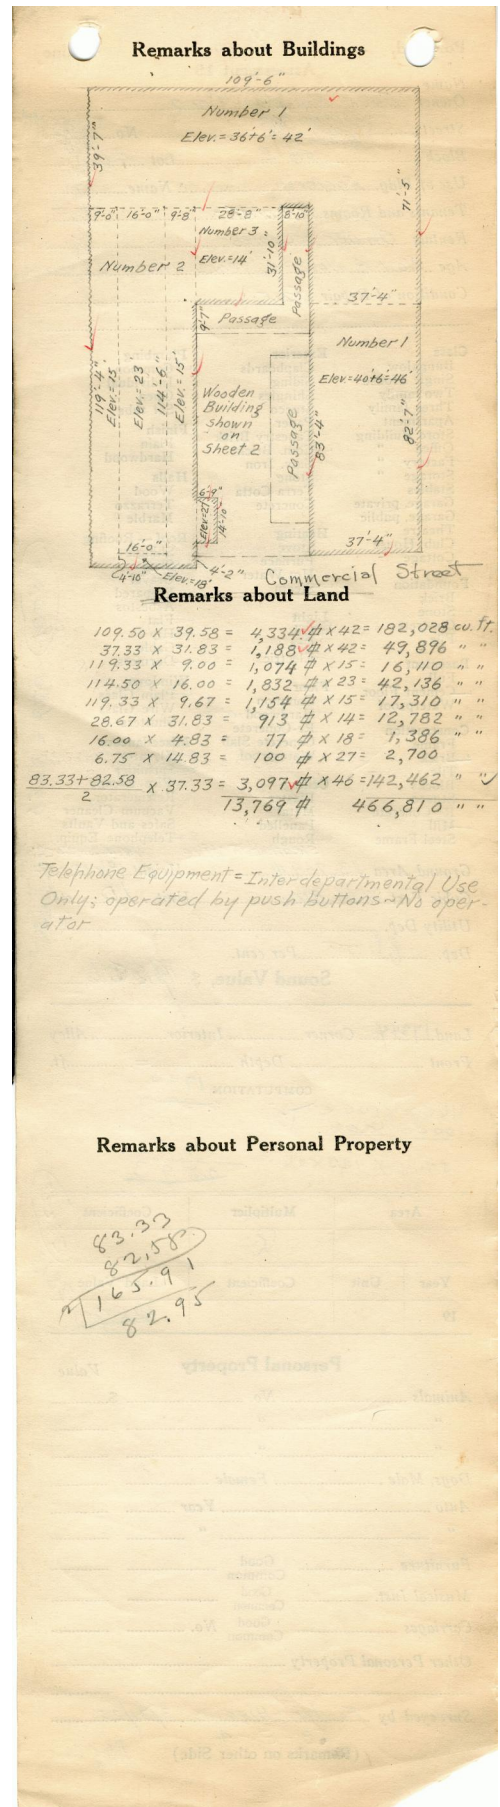 Remarks about Buildings
109'-6"
Number 1
Elev. = 36+6' = 42'
39'-7"
71'-5"
9'-0" 16'-0" 9'-8" 28'-8" 8'-10"
Number 3
Elev. = 14'
31'-10"
Passage
Number 2
37'-4"
9'-7"
Passage
Number 1
Elev. = 40+6' = 46'
119'-4"
Elev. = 15'
Elev. = 23
114'-6"
Elev. = 15'
Wooden
Building
shown
on
Sheet 2
Passage
83'-4"
82'-7"
6'-9"
Elev=27'
14'-10"
16'-0"
37'-4"
4'-10" Elev.=18' 4'-2" Commercial Street
Remarks about Land
109.50 X 39.58 = 4,334 ⌗ X 42 = 182,028 cu. ft.
37.33 X 31.83 = 1,188 ⌗ X 42 = 49,896 " "
119.33 X 9.00 = 1,074 ⌗ X 15 = 16,110 " "
114.50 X 16.00 = 1,832 ⌗ X 23 = 42,136 " "
119.33 X 9.67 = 1,154 ⌗ X 15 = 17,310 " "
28.67 X 31.83 = 913 ⌗ X 14 = 12,782 " "
16.00 X 4.83 = 77 ⌗ X 18 = 1,386 " "
6.75 X 14.83 = 100 ⌗ X 27 = 2,700
83.33+82.58
2 X 37.33 = 3,097 ⌗ X 46 = 142,462 " "
13,769 ⌗ 466,810 " "
Telephone Equipment = Inter departmental Use
Only; operated by push buttons ~ No oper-
ator
Remarks about Personal Property
83.33
82.58
2 165.91
82.95